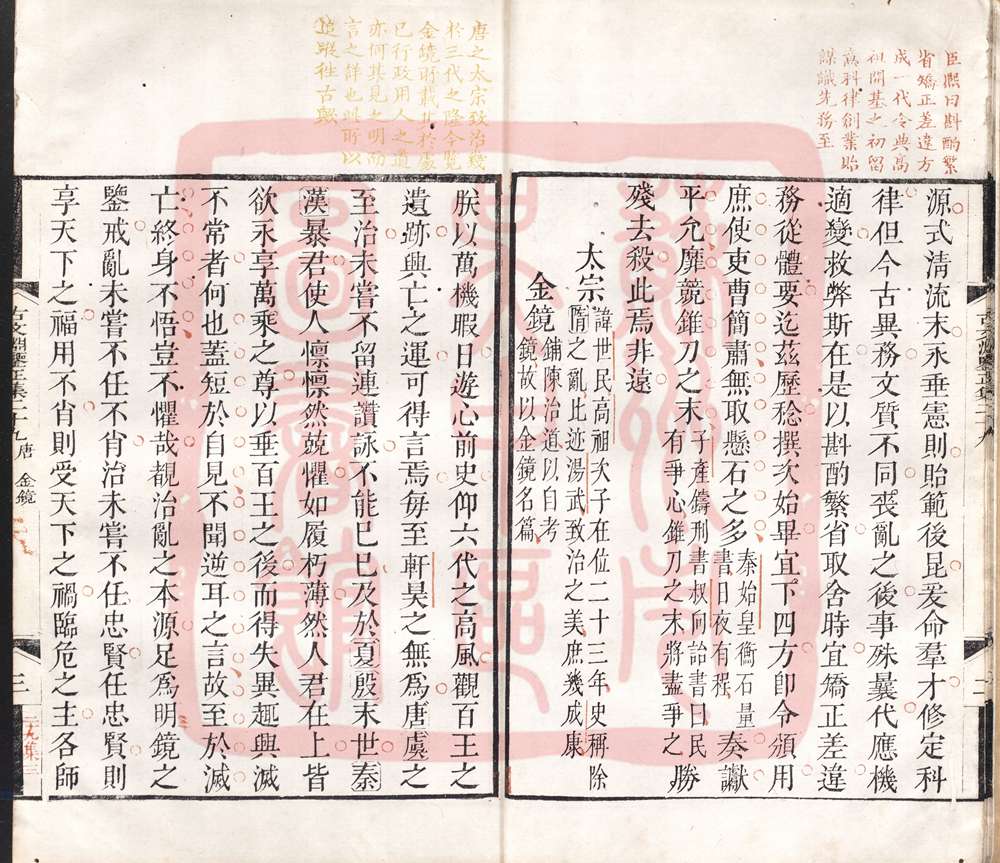 臣熙曰斟酌繁
省矯正差違方
成一代令典高
祖開基之初留
意科律創業貽
謀識先務至
源式清流末永垂憲則貽範後昆爰命羣才修定科
律但今古異務文質不同喪亂之後事殊曩代應機
適變救弊斯在是以斟酌繁省取舍時宜矯正差違
務從體要迄茲歷稔撰次始畢宜下四方即令頒用
庶使吏曹簡肅無取懸石之多秦始皇衡石量書日夜有程奏讞
平允靡競錐刀之末子產鑄刑書叔向詒書曰民有爭心錐刀之末將盡爭之勝
殘去殺此焉非遠
太宗諱世民高祖次子在位二十三年史稱除隋之亂比迹湯武致治之美庶幾成康
金鏡鋪陳治道以自考鏡故以金鏡名篇
唐之太宗致治幾
於三代之隆今覽
金鏡所載其於處
已行政用人之道
亦何其見之明而
言之詳也以所以
追蹤往古歟
朕以萬機暇日遊心前史仰六代之高風觀百王之
遺跡興亡之運可得言焉每至軒昊之無爲唐虞之
至治未嘗不留連讚詠不能已已及於夏殷末世秦
漢暴君使人懍懍然兢懼如履朽薄然人君在上皆
欲永享萬乘之尊以垂百王之後而得失異趣興滅
不常者何也蓋短於自見不聞逆耳之言故至於滅
亡終身不悟豈不懼哉覩治亂之本源足爲明鏡之
鑒戒亂未嘗不任不肖治未嘗不任忠賢任忠賢則
享天下之福用不肖則受天下之禍臨危之主各師
古文淵鑒正集二十九 唐 金鏡
三